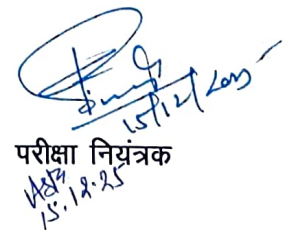 15/12/2025
परीक्षा नियंत्रक
15.12.25